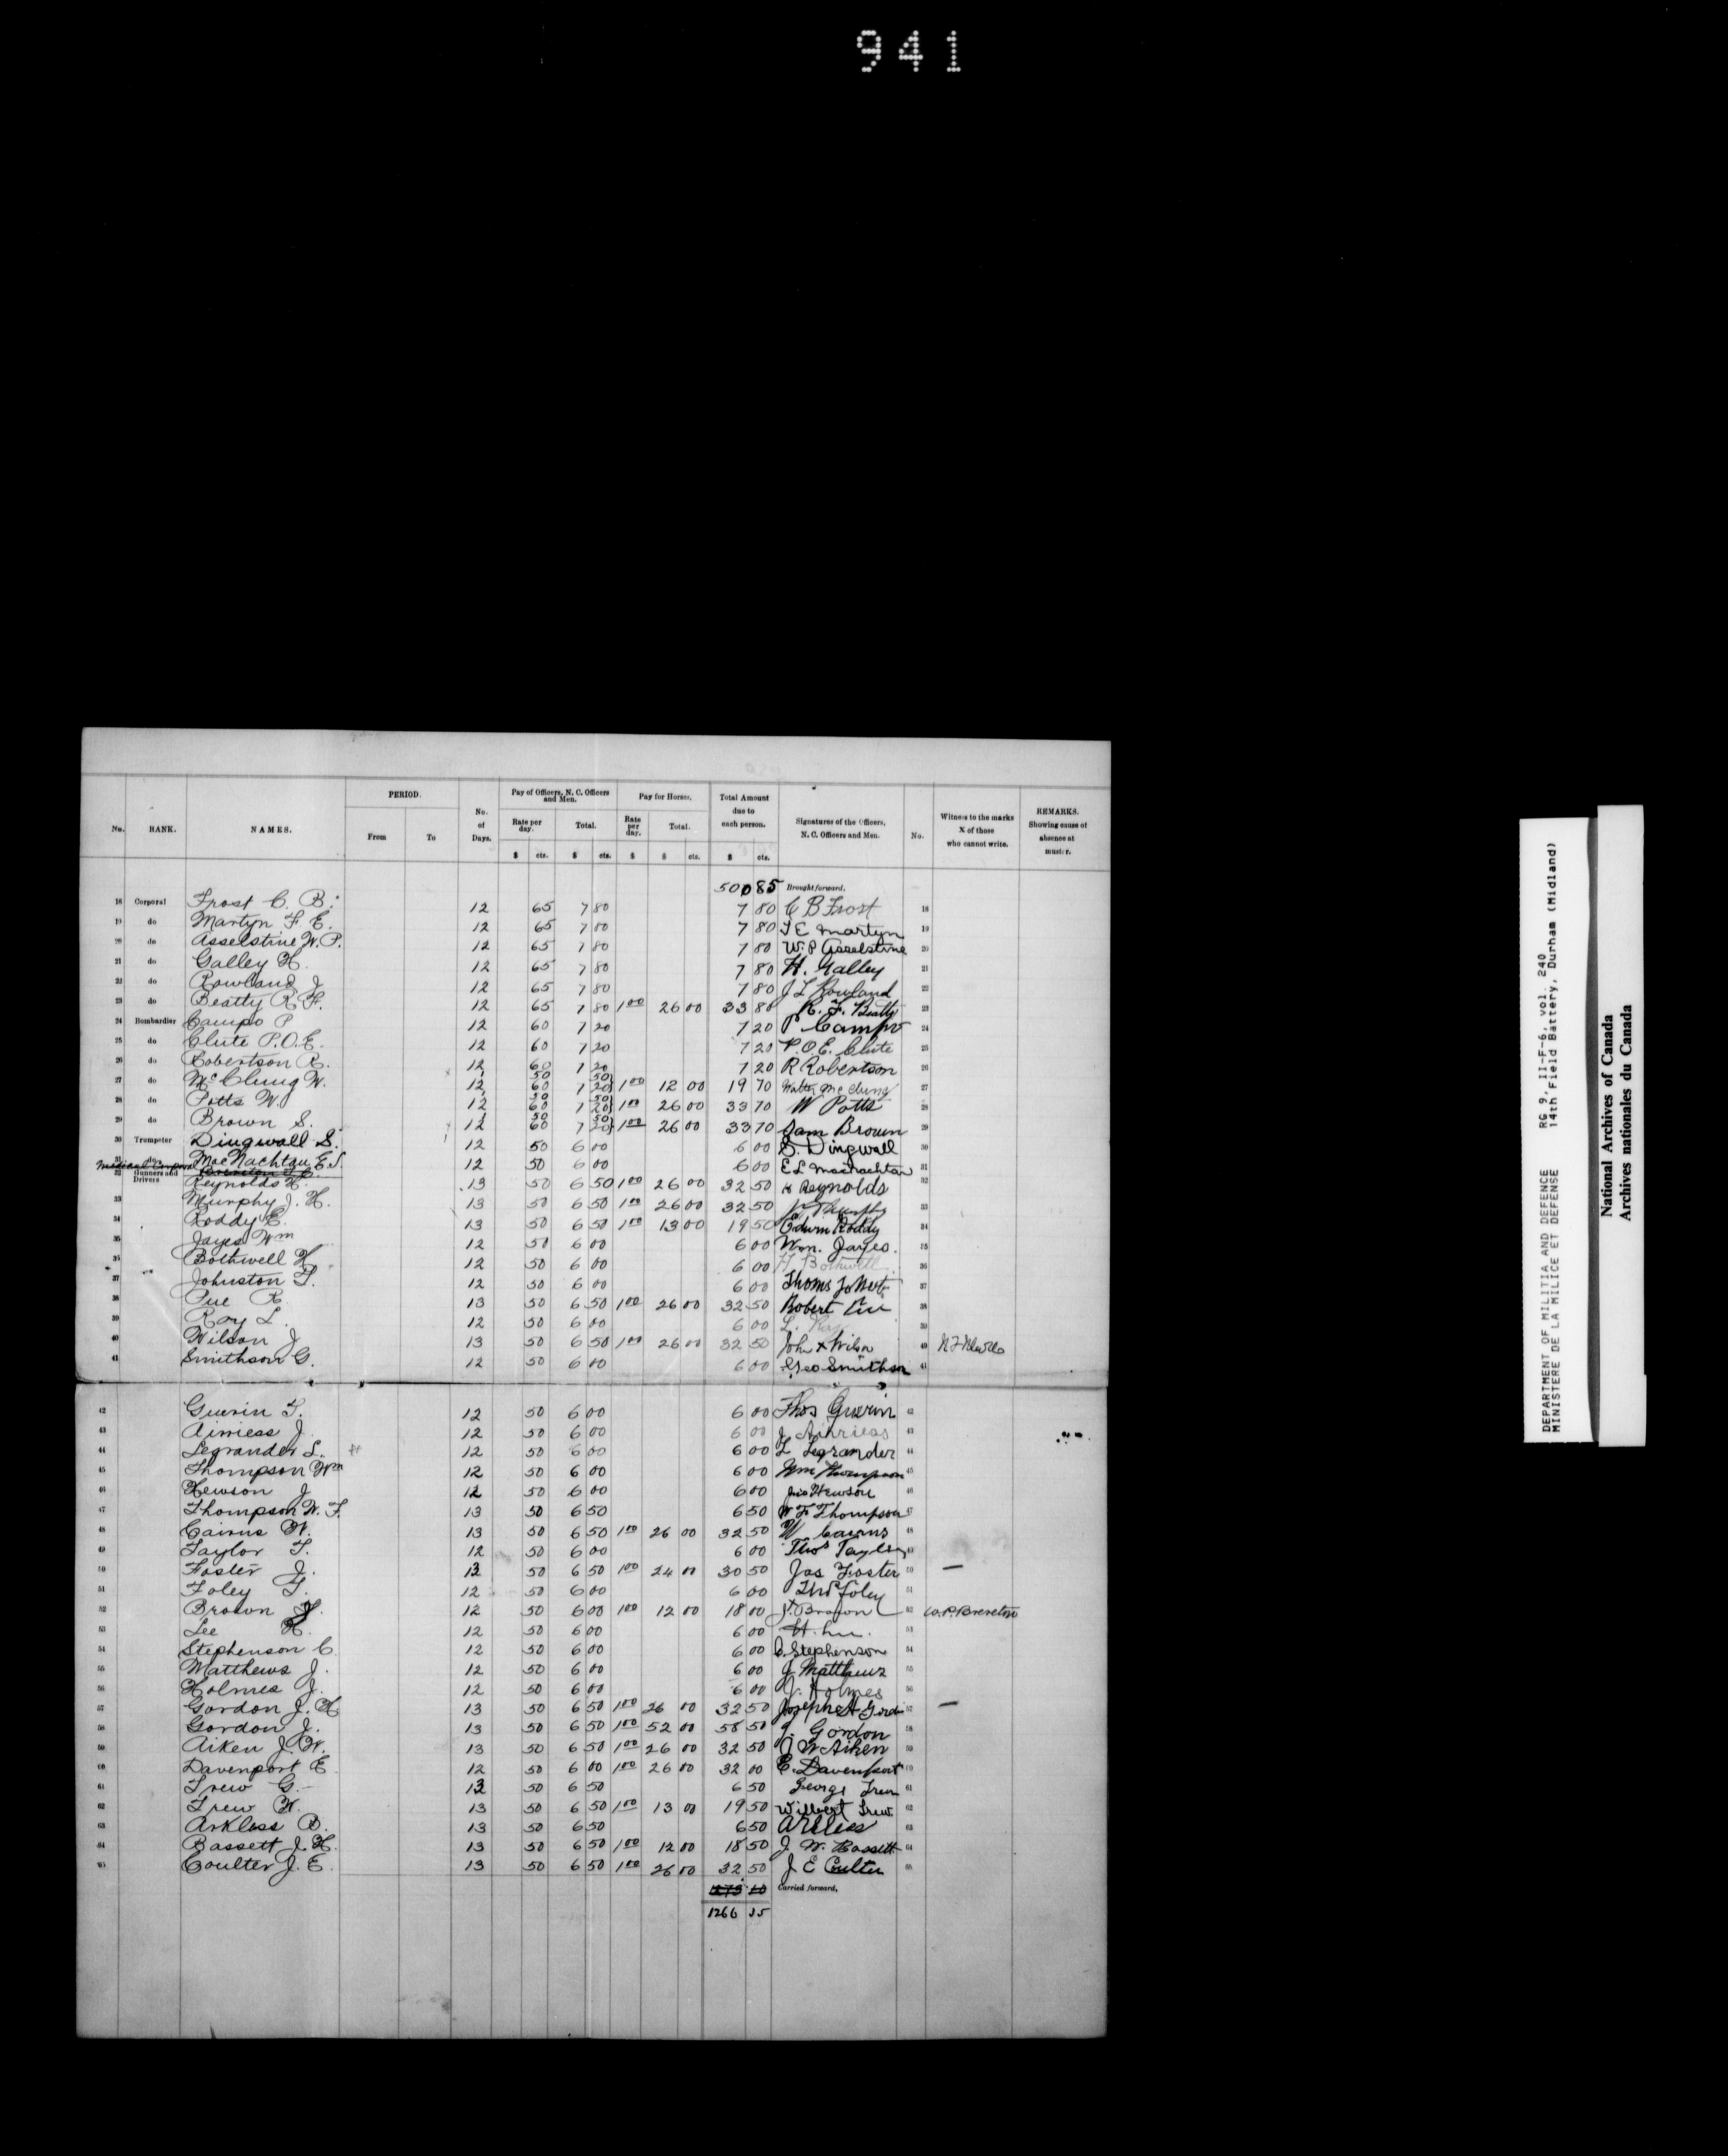 941
PERIOD.
Pay of Officers, N. C. Officers and Men.
Pay for Horses.
Total Amount due to each person.
No. RANK. NAMES. From To No. of Days. Rate per day. Total. Rate per day. Total. Signatures of the Officers, N. C. Officers and Men. No. Witness to the marks X of those who cannot write. REMARKS. Showing cause of absence at muster.
$ cts. $ cts. $ $ cts. $ cts.
500 85 Brought forward.
18 Corporal Frost C. B. 12 65 7 80 7 80 C B Frost 18
19 do Martyn F. E. 12 65 7 80 7 80 F E Martyn 19
20 do Asselstine W. P. 12 65 7 80 7 80 W. P Asselstine 20
21 do Galley H. 12 65 7 80 7 80 H. Galley 21
22 do Rowland J 12 65 7 80 7 80 J L Rowland 22
23 do Beatty R. F. 12 65 7 80 1 00 26 00 33 80 R. F. Beatty 23
24 Bombardier Campo P 12 60 7 20 7 20 P Campo 24
25 do Clute P.O.E. 12 60 7 20 7 20 P.O.E. Clute 25
26 do Robertson R. 12 60 7 20 7 20 R Robertson 26
27 do McClung W. 12 1 60 50 7 20 50 1 00 12 00 19 70 Walter McClung 27
28 do Potts W. 12 1 60 50 7 20 50 1 00 26 00 33 70 W Potts 28
29 do Brown S. 12 1 60 50 7 20 50 1 00 26 00 33 70 Sam Brown 29
30 Trumpeter Dingwall S. 12 50 6 00 6 00 S. Dingwall 30
31 do MacNachtan E. L. 12 50 6 00 6 00 E L MacNachtan 31
32 Gunners and Drivers Reynolds H. 13 50 6 50 1 00 26 00 32 50 H Reynolds 32
33 Murphy J. H. 13 50 6 50 1 00 26 00 32 50 Murphy 33
34 Roddy E. 13 50 6 50 1 00 13 00 19 50 Edwin Roddy 34
35 Jayes Wm 12 50 6 00 6 00 Wm. Jayes. 35
36 Bothwell H 12 50 6 00 6 00 H Bothwell 36
37 Johnston T. 12 50 6 00 6 00 Thoms 37
38 Pue R 13 50 6 50 1 00 26 00 32 50 Robert Pue 38
39 Ray L. 12 50 6 00 6 00 L. Ray 39
40 Wilson J 13 50 6 50 1 00 26 00 32 50 John X Wilson 40
41 Smithson G. 12 50 6 00 6 00 Geo Smithson 41
42 Guerin T. 12 50 6 00 6 00 Thos Guerin 42
43 Airriess J. 12 50 6 00 6 00 J Airriess 43
44 Legrander L. 12 50 6 00 6 00 L Legrander 44
45 Thompson Wm 12 50 6 00 6 00 Wm Thompson 45
46 Hewson J 12 50 6 00 6 00 Jno Hewson 46
47 Thompson W. F. 13 50 6 50 6 50 W F Thompson 47
48 Cairns W. 13 50 6 50 1 00 26 00 32 50 W Cairns 48
49 Taylor T. 12 50 6 00 6 00 Thos Taylor 49
50 Foster J. 13 50 6 50 1 00 24 00 30 50 Jas Foster 50 —
51 Foley T. 12 50 6 00 6 00 Thos Foley 51
52 Brown J. 12 50 6 00 1 00 12 00 18 00 J. X Brown 52 W.P. Brereton
53 Lee H. 12 50 6 00 6 00 H. Lee. 53
54 Stephenson C 12 50 6 00 6 00 C. Stephenson 54
55 Matthews J. 12 50 6 00 6 00 J Matthews 55
56 Holmes J. 12 50 6 00 6 00 J. Holmes 56
57 Gordon J. H 13 50 6 50 1 00 26 00 32 50 Joseph H Gordon 57 —
58 Gordon J. 13 50 6 50 1 00 52 00 58 50 J. Gordon 58
59 Aiken J. W. 13 50 6 50 1 00 26 00 32 50 J W Aiken 59
60 Davenport E 12 50 6 00 1 00 26 00 32 00 E. Davenport 60
61 Trew G. 13 50 6 50 6 50 George Trew 61
62 Trew W. 13 50 6 50 1 00 13 00 19 50 Wilbert Trew 62
63 Arkless B. 13 50 6 50 6 50 Arkless 63
64 Bassett J. H. 13 50 6 50 1 00 12 00 18 50 J. W. Bassett 64
65 Coulter J. E. 13 50 6 50 1 00 26 00 32 50 J E Coulter 65
1273 10 Carried forward.
1266 35
DEPARTMENT OF MILITIA AND DEFENCE RG 9, II-F-6, vol. 240
MINISTERE DE LA MILICE ET DEFENSE 14th Field Battery, Durham (Midland)
National Archives of Canada
Archives nationales du Canada